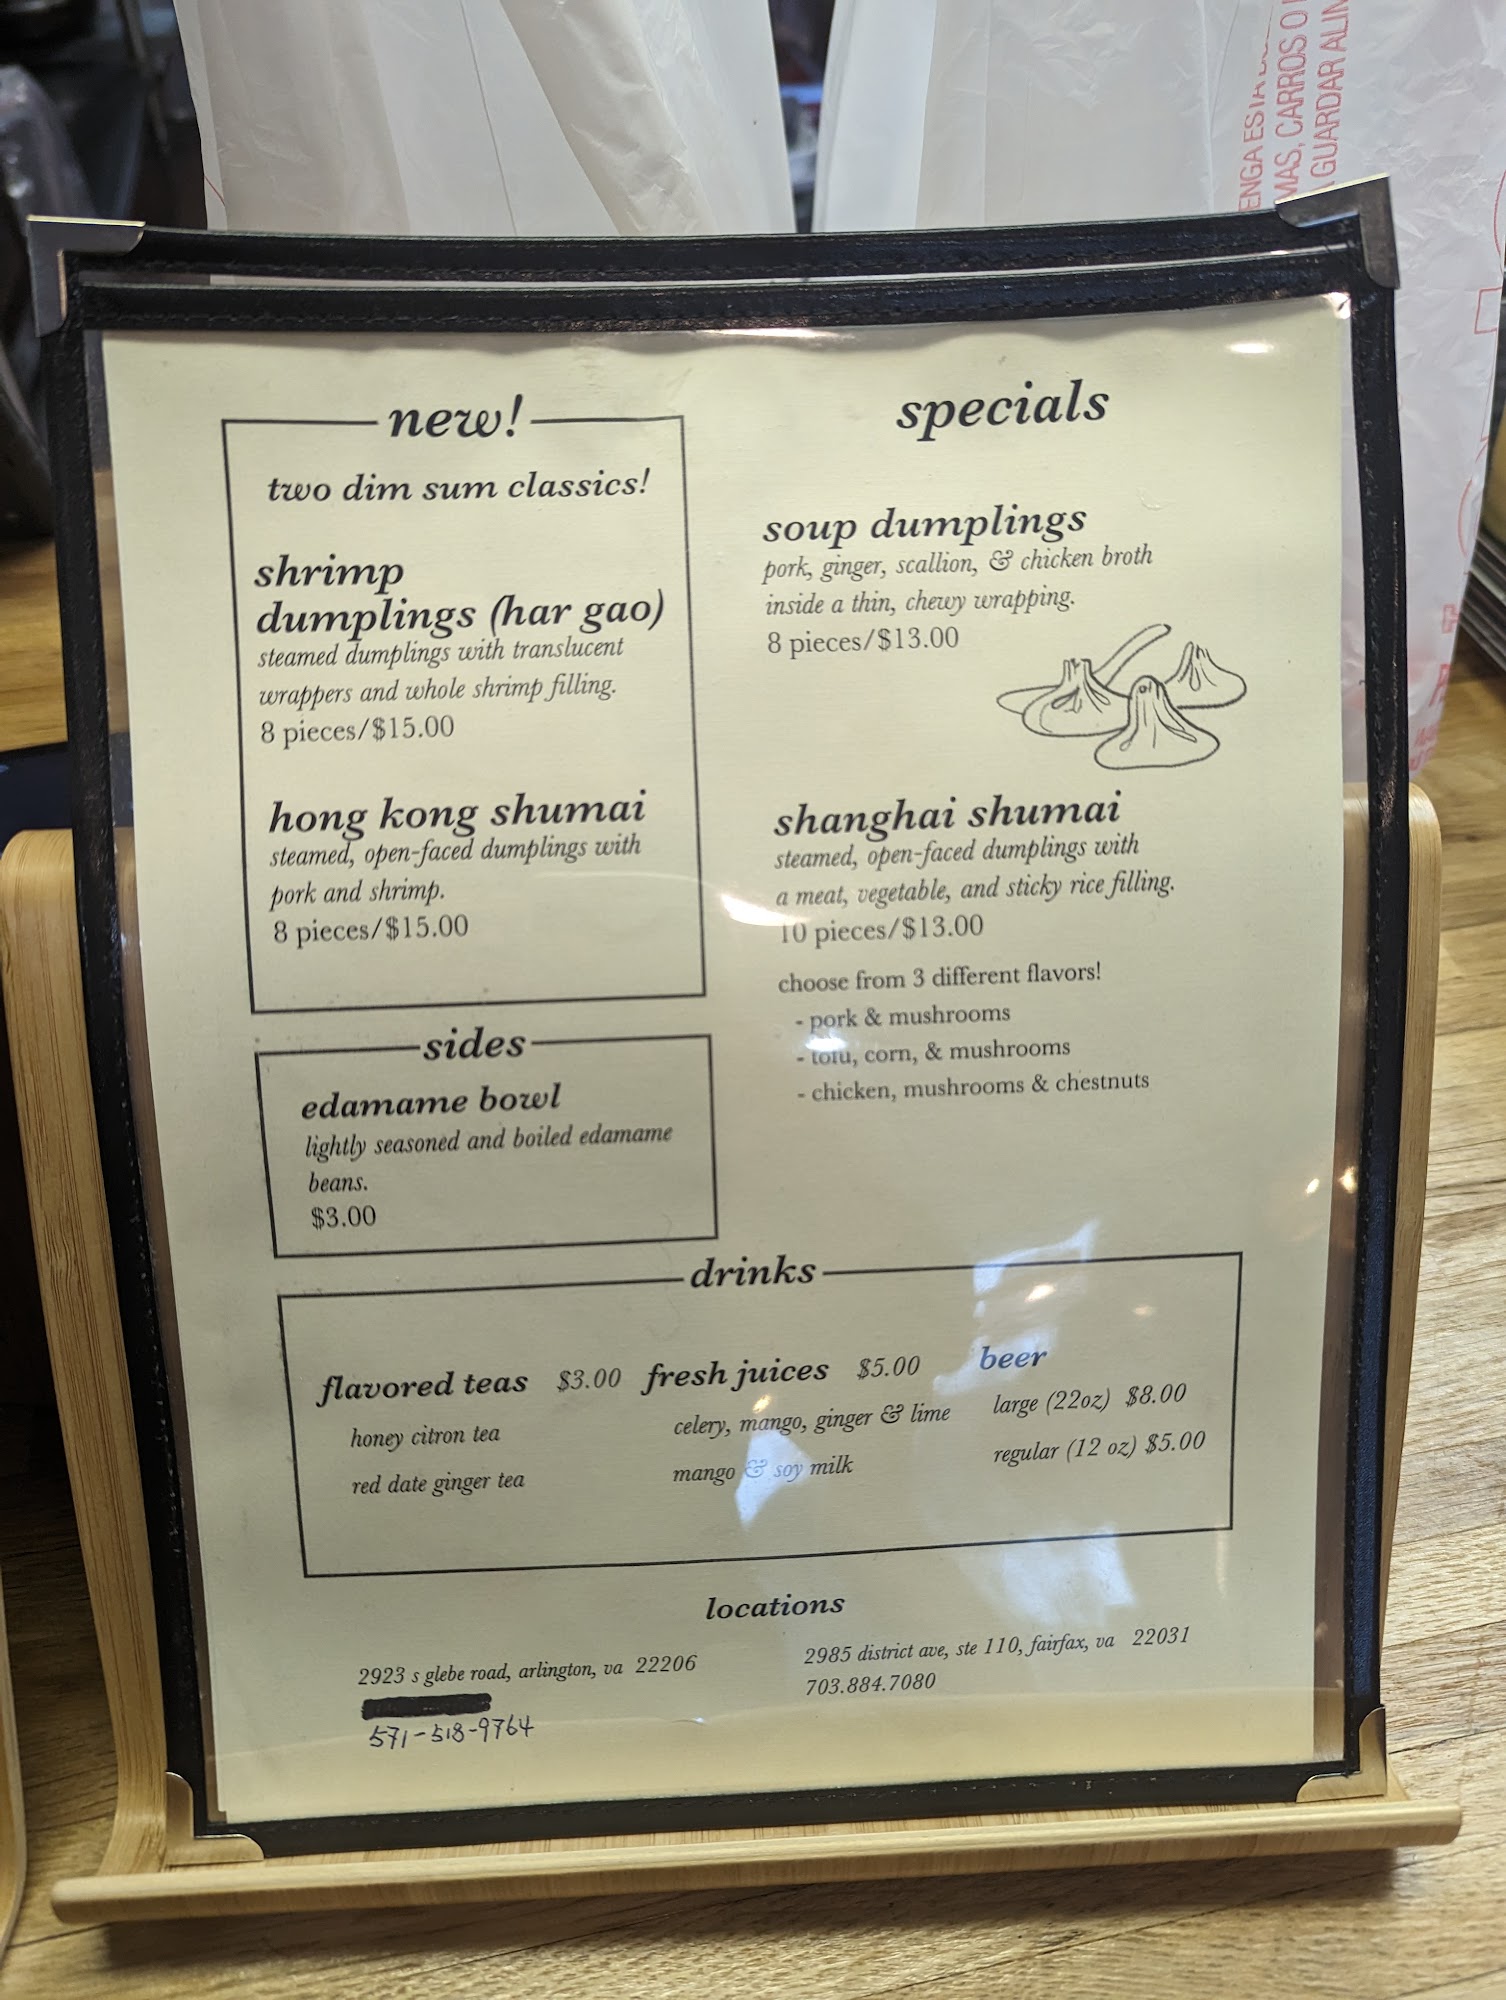 ENGA ESTA
MAS, CARROS O
GUARDAR ALIM
new!
two dim sum classics!
shrimp
dumplings (har gao)
steamed dumplings with translucent
wrappers and whole shrimp filling.
8 pieces/$15.00
hong kong shumai
steamed, open-faced dumplings with
pork and shrimp.
8 pieces/$15.00
sides
edamame bowl
lightly seasoned and boiled edamame
beans.
$3.00
specials
soup dumplings
pork, ginger, scallion, & chicken broth
inside a thin, chewy wrapping.
8 pieces/$13.00
shanghai shumai
steamed, open-faced dumplings with
a meat, vegetable, and sticky rice filling.
10 pieces/$13.00
choose from 3 different flavors!
- pork & mushrooms
- tofu, corn, & mushrooms
- chicken, mushrooms & chestnuts
drinks
flavored teas $3.00
honey citron tea
red date ginger tea
fresh juices $5.00
celery, mango, ginger & lime
mango & soy milk
beer
large (22oz) $8.00
regular (12 oz) $5.00
locations
2923 s glebe road, arlington, va 22206
571-518-9764
2985 district ave, ste 110, fairfax, va 22031
703.884.7080